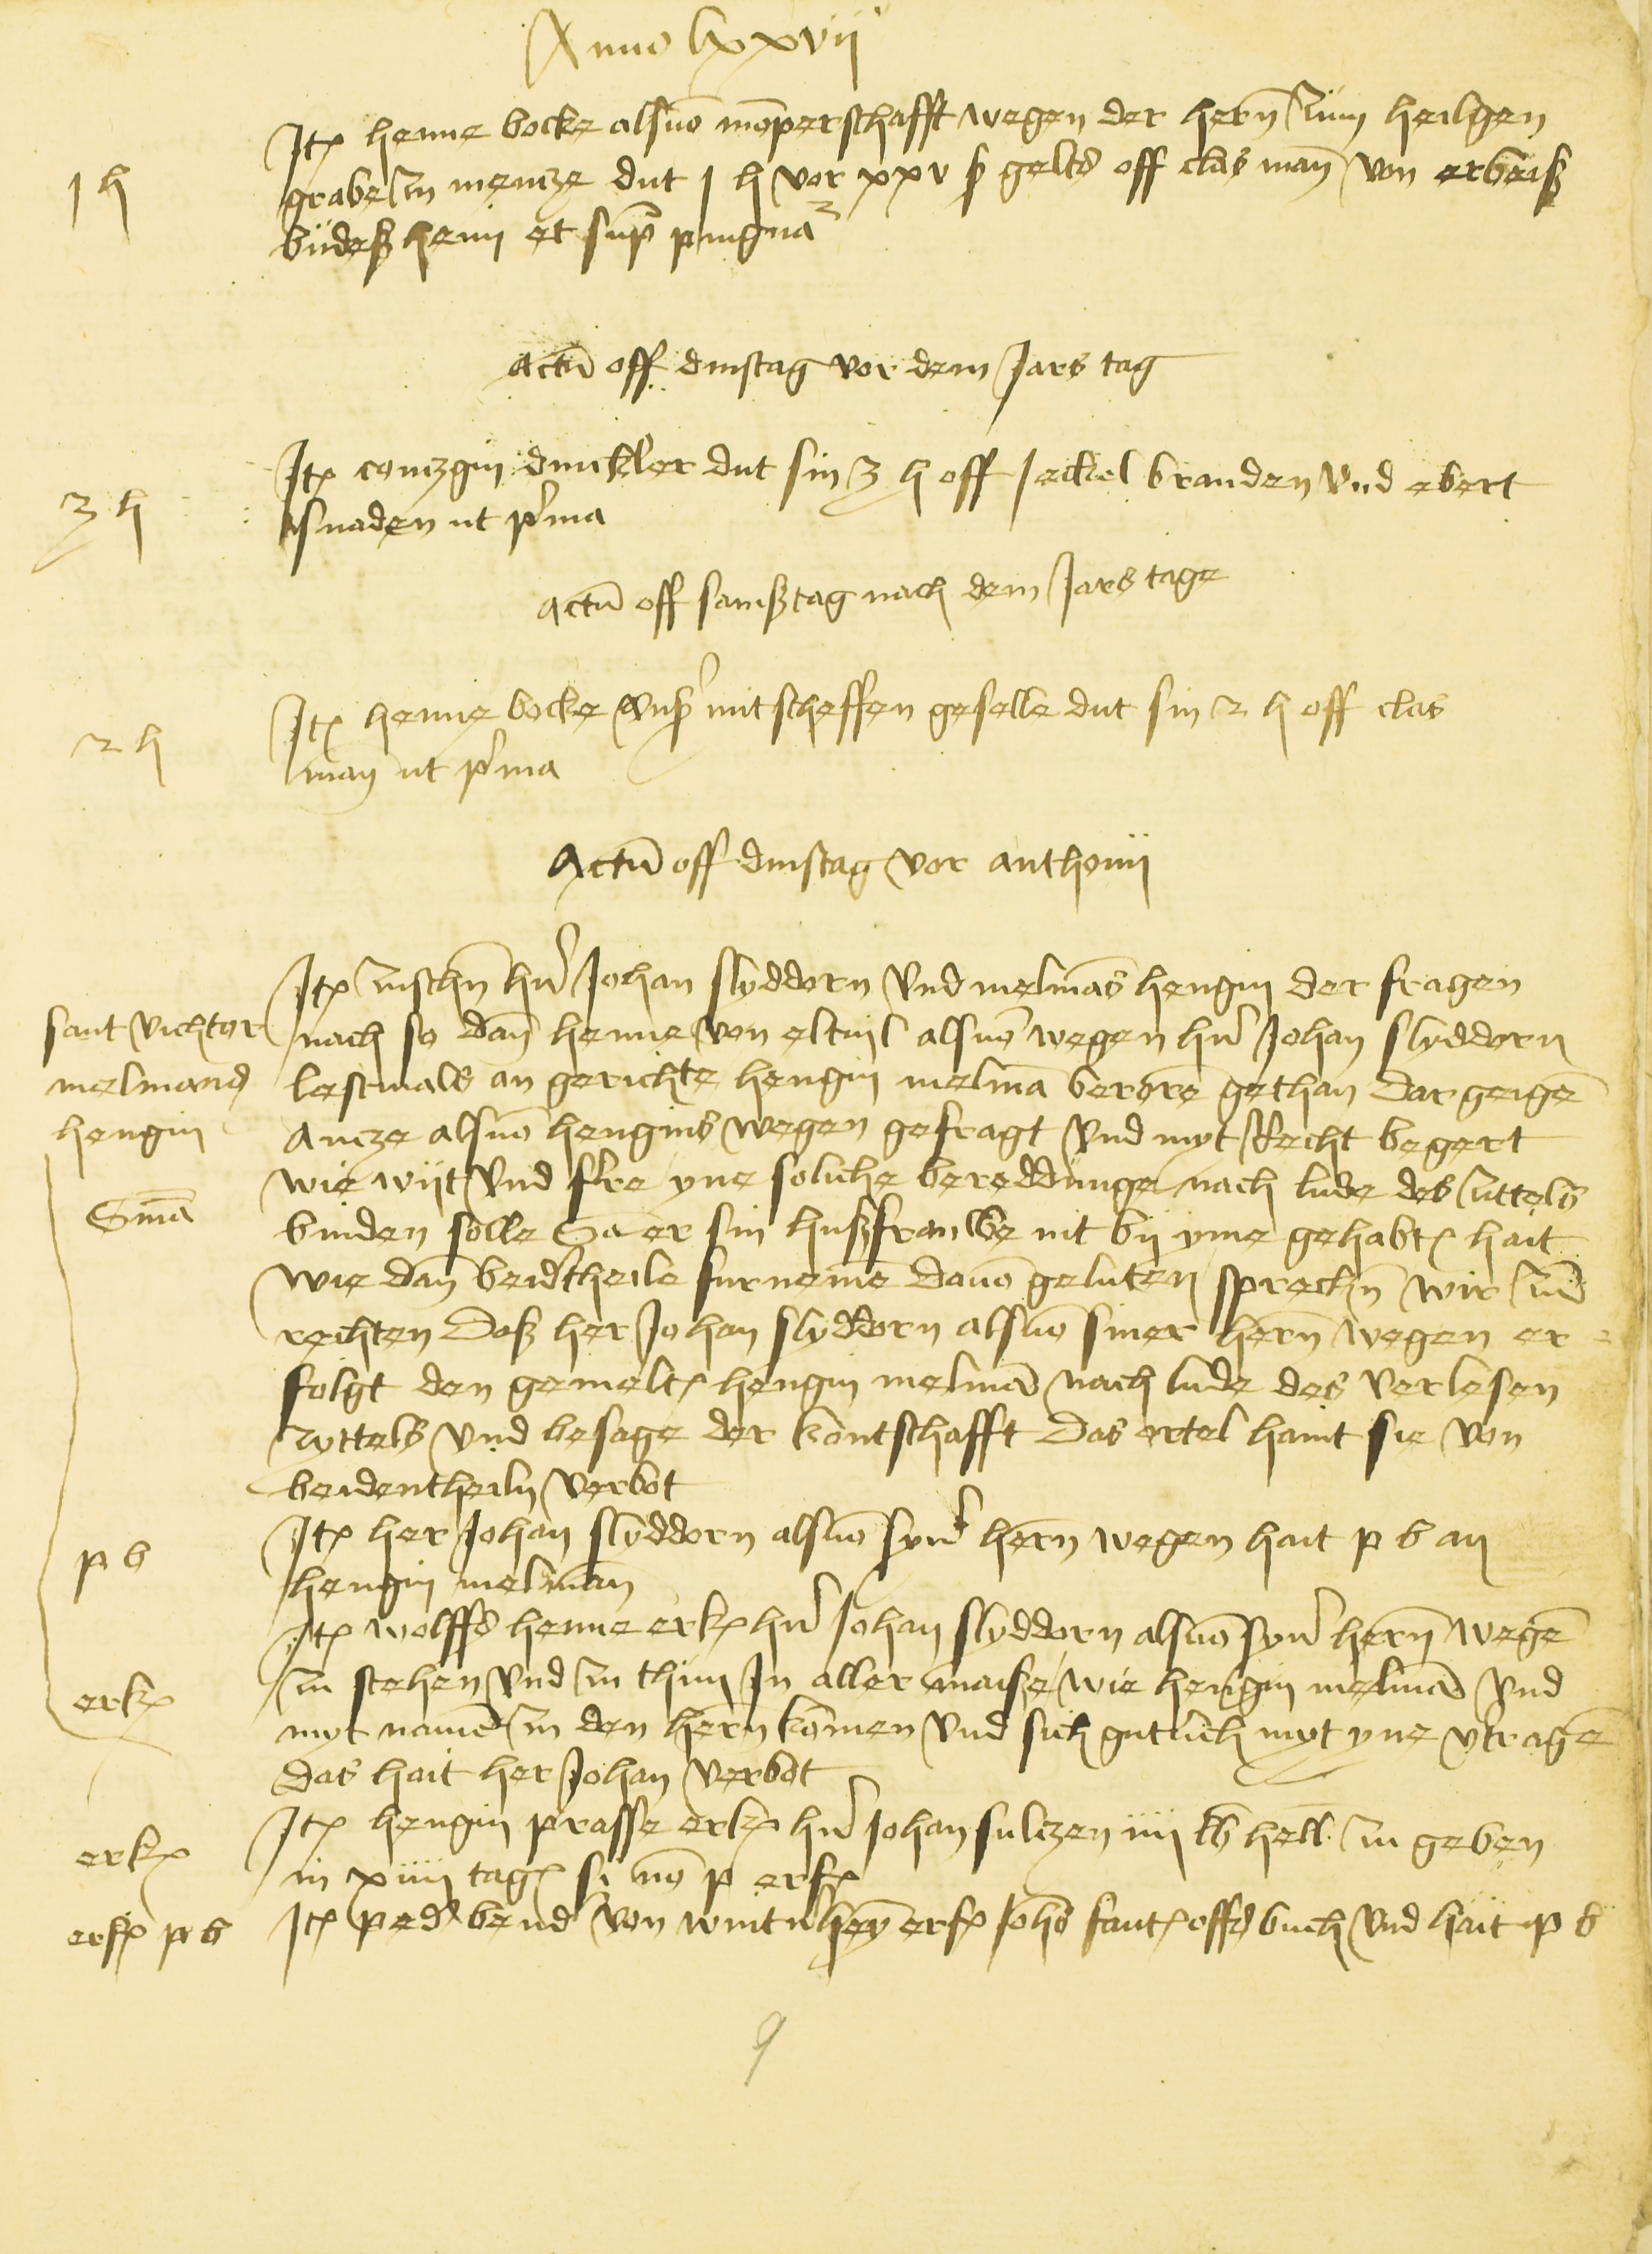 Anno lxxvii
1 h
Itꝫ henne bocke alsuō mōperschafft wegen der hern̄ zum heilgen
grabe zu mencze dut 1 h vor xxv ß gelts off clas man̄ von erbeiß
büdeßheim et sup̄ pingna
Actū off dinstag vor dem Jars tag
3 h
Itꝫ conczgin dinckler dut sin 3 h off Jeckel branden vnd ebert
snaden ut p͛ma
Actū off samßtag nach dem Jars tage
2 h
Itꝫ henne bocke vnß͛ mitscheffen geselle dut sin 2 h off clas
man ut p͛ma
Actū off dinstag vor anthonii
Itꝫ zuschn̄ h͛n Johan slyddorn vnd melmās hengin der fragen
sant victor nach so dan̄ henne von eltuil alsuō wegen h͛n Johan slyddorn
melmans lestmals an gerichte hengin melmā berore gethan Dar geigē
hengin Ancze alsuō hengins wegen gefragt vnd myt Recht begert
wie wijt vnd fre yne soliche bereddunge nach lude des zittels
Smā
binden solle Sa er sin hußfrauwe nit bij yme gehabtꝫ hait
wie dan̄ beidtheile furnemē dauō geluten sprechn̄ wir zud
rechten Daß her Johan slyddorn alsuō siner hern̄ wegen er
folgt den gemeltꝫ hengin melmā nach lude des verlesen
zyttels vnd besage der kontschafft Das ortel haint sie von
beidentheiln verbot
p b
Itꝫ her Johan slyddorn alsuō syn͛ hern̄ wegen hait p b an
hengin melman
Itꝫ wolffs henne erkꝫ h͛n Johan slyddorn alsuō syn͛ hern̄ wegē
erkꝫ
zu stehen vnd zu thun In aller maiße wie hengin melmā vnd
myt namē zu den hern̄ komen vnd sich gutlich myt yne vtragē
das hait her Johan verbot
erkꝫ
Itꝫ hengin prasse erkꝫ h͛n Johan sulczen iiii lb hell zu geben
in xiiii tagꝫ si nō p erfꝫ
erfꝫ p b
Itꝫ ped͛ bend͛ von wint͛nhey erfꝫ Johs fautꝫ offs buch vnd hait p b
9